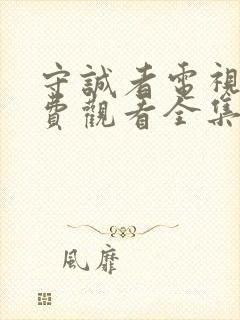 守誠者電視
費觀看全集
風靡